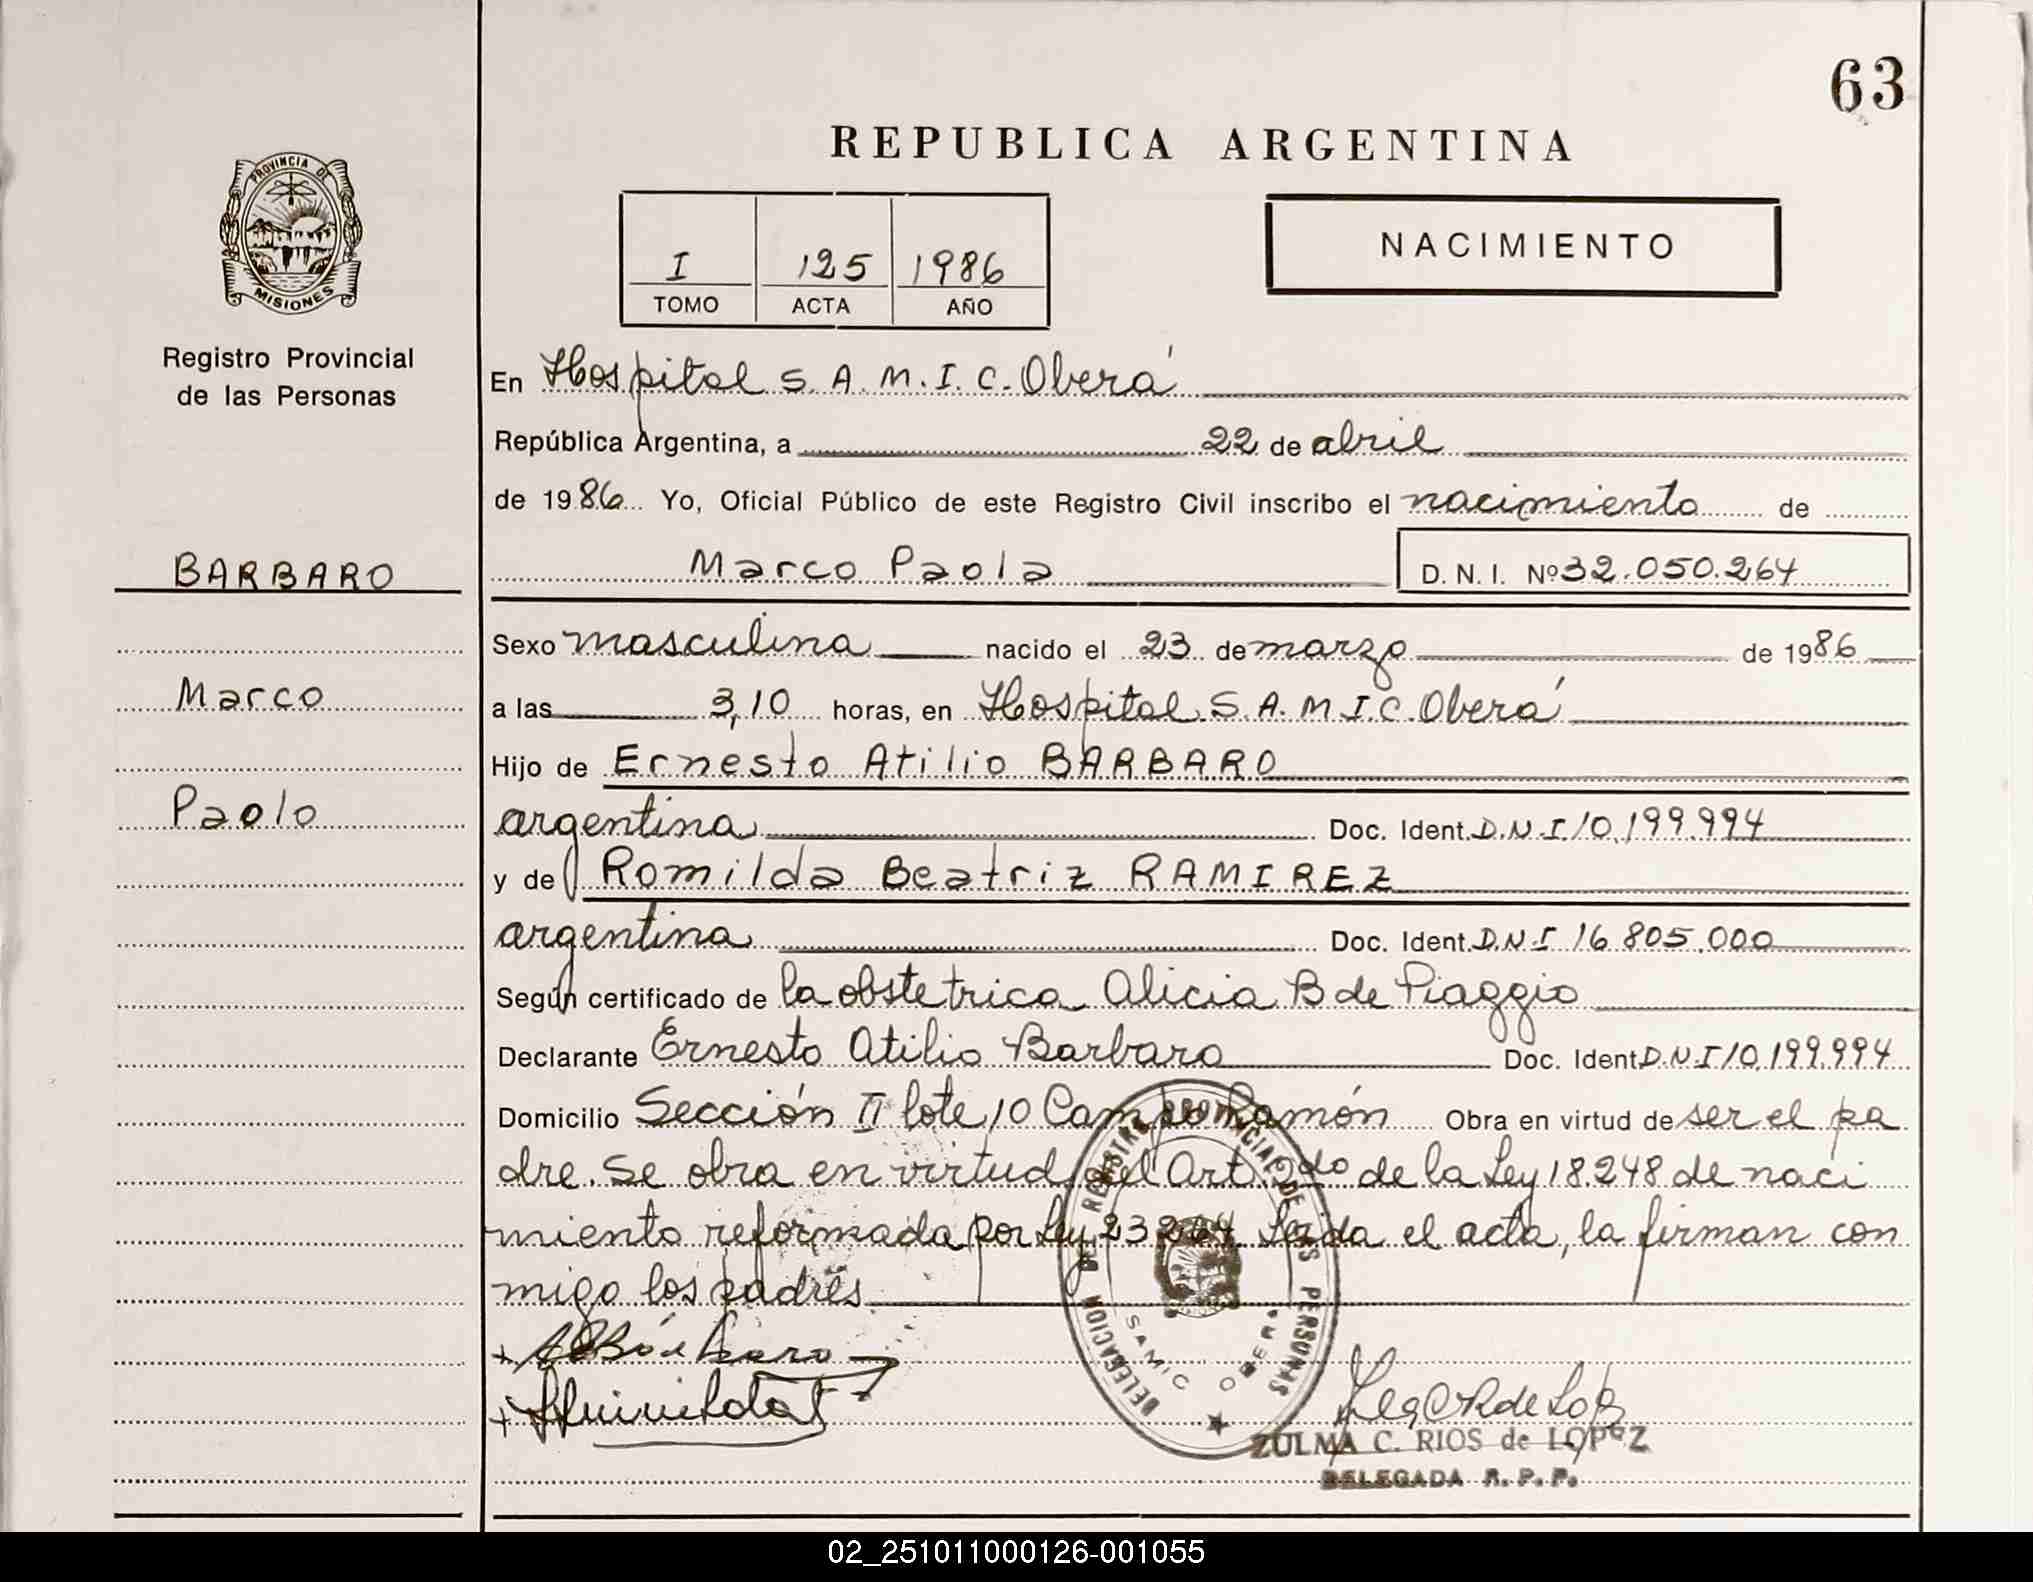 63
REPUBLICA ARGENTINA
PROVINCIA DE
MISIONES
Registro Provincial
de las Personas
NACIMIENTO
I 125 1986
TOMO ACTA AÑO
En Hospital S. A. M. I. C. Oberá
República Argentina, a 22 de abril
de 1986 Yo, Oficial Público de este Registro Civil inscribo el nacimiento de
BARBARO
Marco Paola D. N. I. Nº 32.050.264
Sexo masculina nacido el 23 de marzo de 1986
Marco
a las 3,10 horas, en Hospital S. A. M. I. C. Oberá
Hijo de Ernesto Atilio BARBARO
Paolo
argentina Doc. Ident. D.N.I 10,199.994
y de Romilda Beatriz RAMIREZ
argentina Doc. Ident. D.N.I 16 805.000
Según certificado de la obstetrica Alicia B de Piaggio
Declarante Ernesto Atilio Barbaro Doc. Ident D.N.I 10,199.994
Domicilio Sección II lote 10 Campo Ramón Obra en virtud de ser el pa
dre. Se obra en virtud del Art. 2do de la Ley 18.248 de naci
miento reformada por Ley 23 264 Leida el acta, la firman con
migo los padres
DELEGACION DEL REGISTRO PROVINCIAL DE LAS PERSONAS
SAMIC OBERA
ZULMA C. RIOS de LOPEZ
DELEGADA R. P. P.
02_251011000126-001055